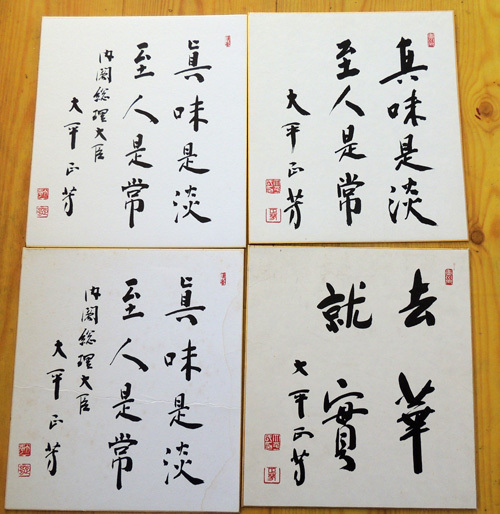 眞味是淡
至人是常
内閣総理大臣
大平正芳
真味是淡
至人是常
大平正芳
眞味是淡
至人是常
内閣総理大臣
大平正芳
去華
就實
大平正芳